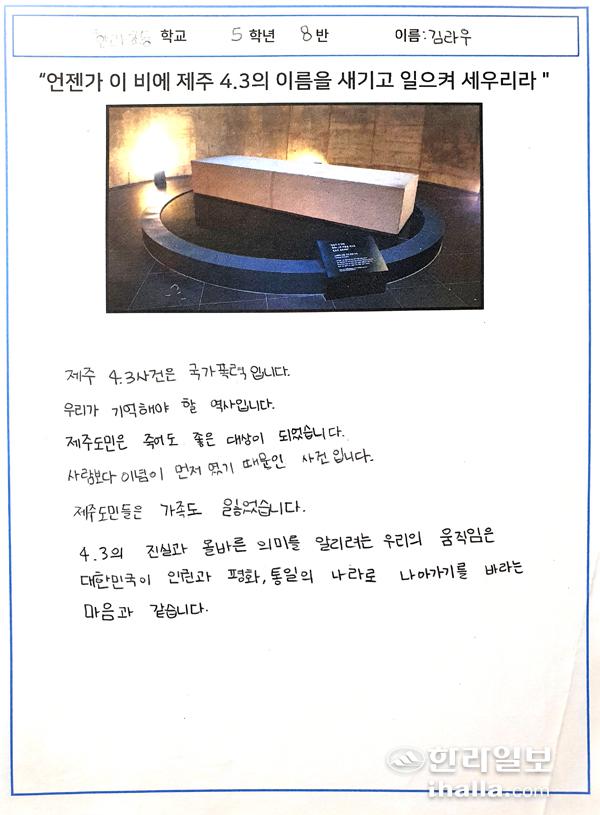 학교 5학년 8반 이름: 김라우
“언젠가 이 비에 제주 4.3의 이름을 새기고 일으켜 세우리라 "
제주 4.3사건은 국가폭력입니다.
우리가 기억해야 할 역사입니다.
제주도민은 죽어도 좋은 대상이 되었습니다.
사람보다 이념이 먼저 였기 때문인 사건입니다.
제주도민들은 가족도 잃었습니다.
4.3의 진실과 올바른 의미를 알리려는 우리의 움직임은
대한민국이 인권과 평화, 통일의 나라로 나아가기를 바라는
마음과 같습니다.
한라일보
ihalla.com